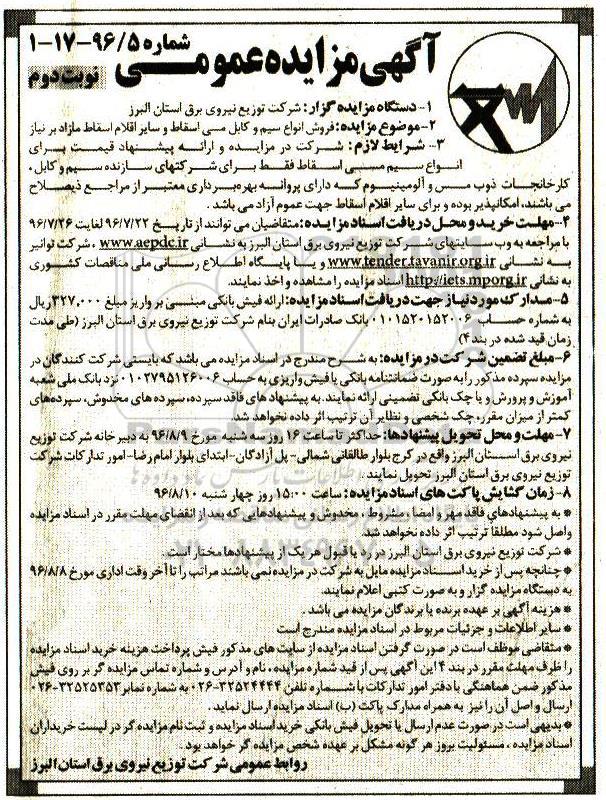 آگهی مزایده عمومی
شماره ۹۶/۵-۱۷-۱
نوبت دوم
۱- دستگاه مزایده گزار: شرکت توزیع نیروی برق استان البرز
۲- موضوع مزایده: فروش انواع سیم و کابل مسی اسقاط و سایر اقلام اسقاط مازاد بر نیاز
۳- شرایط لازم: شرکت در مزایده و ارائه پیشنهاد قیمت برای
انواع سیم مسی اسقاط فقط برای شرکتهای سازنده سیم و کابل،
کارخانجات ذوب مس و آلومینیوم که دارای پروانه بهره‌برداری معتبر از مراجع ذیصلاح
می باشند، امکانپذیر بوده و برای سایر اقلام اسقاط جهت عموم آزاد می باشد.
۴- مهلت خرید و محل دریافت اسناد مزایده: متقاضیان می توانند از تاریخ ۹۶/۷/۲۲ لغایت ۹۶/۷/۲۶
با مراجعه به وب سایتهای شرکت توزیع نیروی برق استان البرز به نشانی www.aepdc.ir، شرکت توانیر
به نشانی www.tender.tavanir.org.ir و یا پایگاه اطلاع رسانی ملی مناقصات کشوری
به نشانی http://iets.mporg.ir اسناد مزایده را مشاهده و اخذ نمایند.
۵- مدارک مورد نیاز جهت دریافت اسناد مزایده: ارائه فیش بانکی مبنی بر واریز مبلغ ۳۲۷,۰۰۰ ریال
به شماره حساب ۰۱۰۱۵۲۰۱۵۲۰۰۶ بانک صادرات ایران بنام شرکت توزیع نیروی برق استان البرز (طی مدت
زمان قید شده در بند ۴)
۶- مبلغ تضمین شرکت در مزایده: به شرح مندرج در اسناد مزایده می باشد که بایستی شرکت کنندگان در
مزایده سپرده مذکور را به صورت ضمانتنامه بانکی یا فیش واریزی به حساب ۰۱۰۲۷۹۵۱۲۶۰۰۶ نزد بانک ملی شعبه
آموزش و پرورش و یا چک بانکی تضمینی ارائه نمایند. به پیشنهاد های فاقد سپرده، سپرده های مخدوش، سپرده‌های
کمتر از میزان مقرر، چک شخصی و نظایر آن ترتیب اثر داده نخواهد شد.
۷- مهلت و محل تحویل پیشنهادها: حداکثر تا ساعت ۱۶ روز سه شنبه مورخ ۹۶/۸/۹ به دبیرخانه شرکت توزیع
نیروی برق استان البرز واقع در کرج بلوار طالقانی شمالی- پل آزادگان- ابتدای بلوار امام رضا- امور تدارکات شرکت
توزیع نیروی برق استان البرز تحویل نمایند.
۸- زمان گشایش پاکت های اسناد مزایده: ساعت ۱۵:۰۰ روز چهار شنبه ۹۶/۸/۱۰
* به پیشنهادهای فاقد مهر و امضا، مشروط، مخدوش و پیشنهادهایی که بعد از انقضای مهلت مقرر در اسناد مزایده
واصل شود مطلقا ترتیب اثر داده نخواهد شد.
* شرکت توزیع نیروی برق استان البرز در رد یا قبول هر یک از پیشنهادها مختار است.
* چنانچه پس از خرید اسناد مزایده مایل به شرکت در مزایده نمی باشند مراتب را تا آخر وقت اداری مورخ ۹۶/۸/۸
به دستگاه مزایده گزار و به صورت کتبی اعلام نمایند.
* هزینه آگهی بر عهده برنده یا برندگان مزایده می باشد.
* سایر اطلاعات و جزئیات مربوط در اسناد مزایده مندرج است
* متقاضی موظف است در صورت گرفتن اسناد مزایده از سایت های مذکور فیش پرداخت هزینه خرید اسناد مزایده
را ظرف مهلت مقرر در بند ۴ این آگهی پس از قید شماره مزایده، نام و آدرس و شماره تماس مزایده گر بر روی فیش
مذکور ضمن هماهنگی با دفتر امور تدارکات با شماره تلفن ۳۲۵۲۴۴۴۴-۰۲۶ به شماره نمابر ۳۲۵۲۵۳۵۳-۰۲۶
ارسال و اصل آن را نیز به همراه مدارک پاکت (ب) اسناد مزایده ارسال نماید.
* بدیهی است در صورت عدم ارسال یا تحویل فیش بانکی خرید اسناد مزایده و ثبت نام مزایده گر در لیست خریداران
اسناد مزایده، مسئولیت بروز هر گونه مشکل بر عهده شخص مزایده گر خواهد بود.
روابط عمومی شرکت توزیع نیروی برق استان البرز